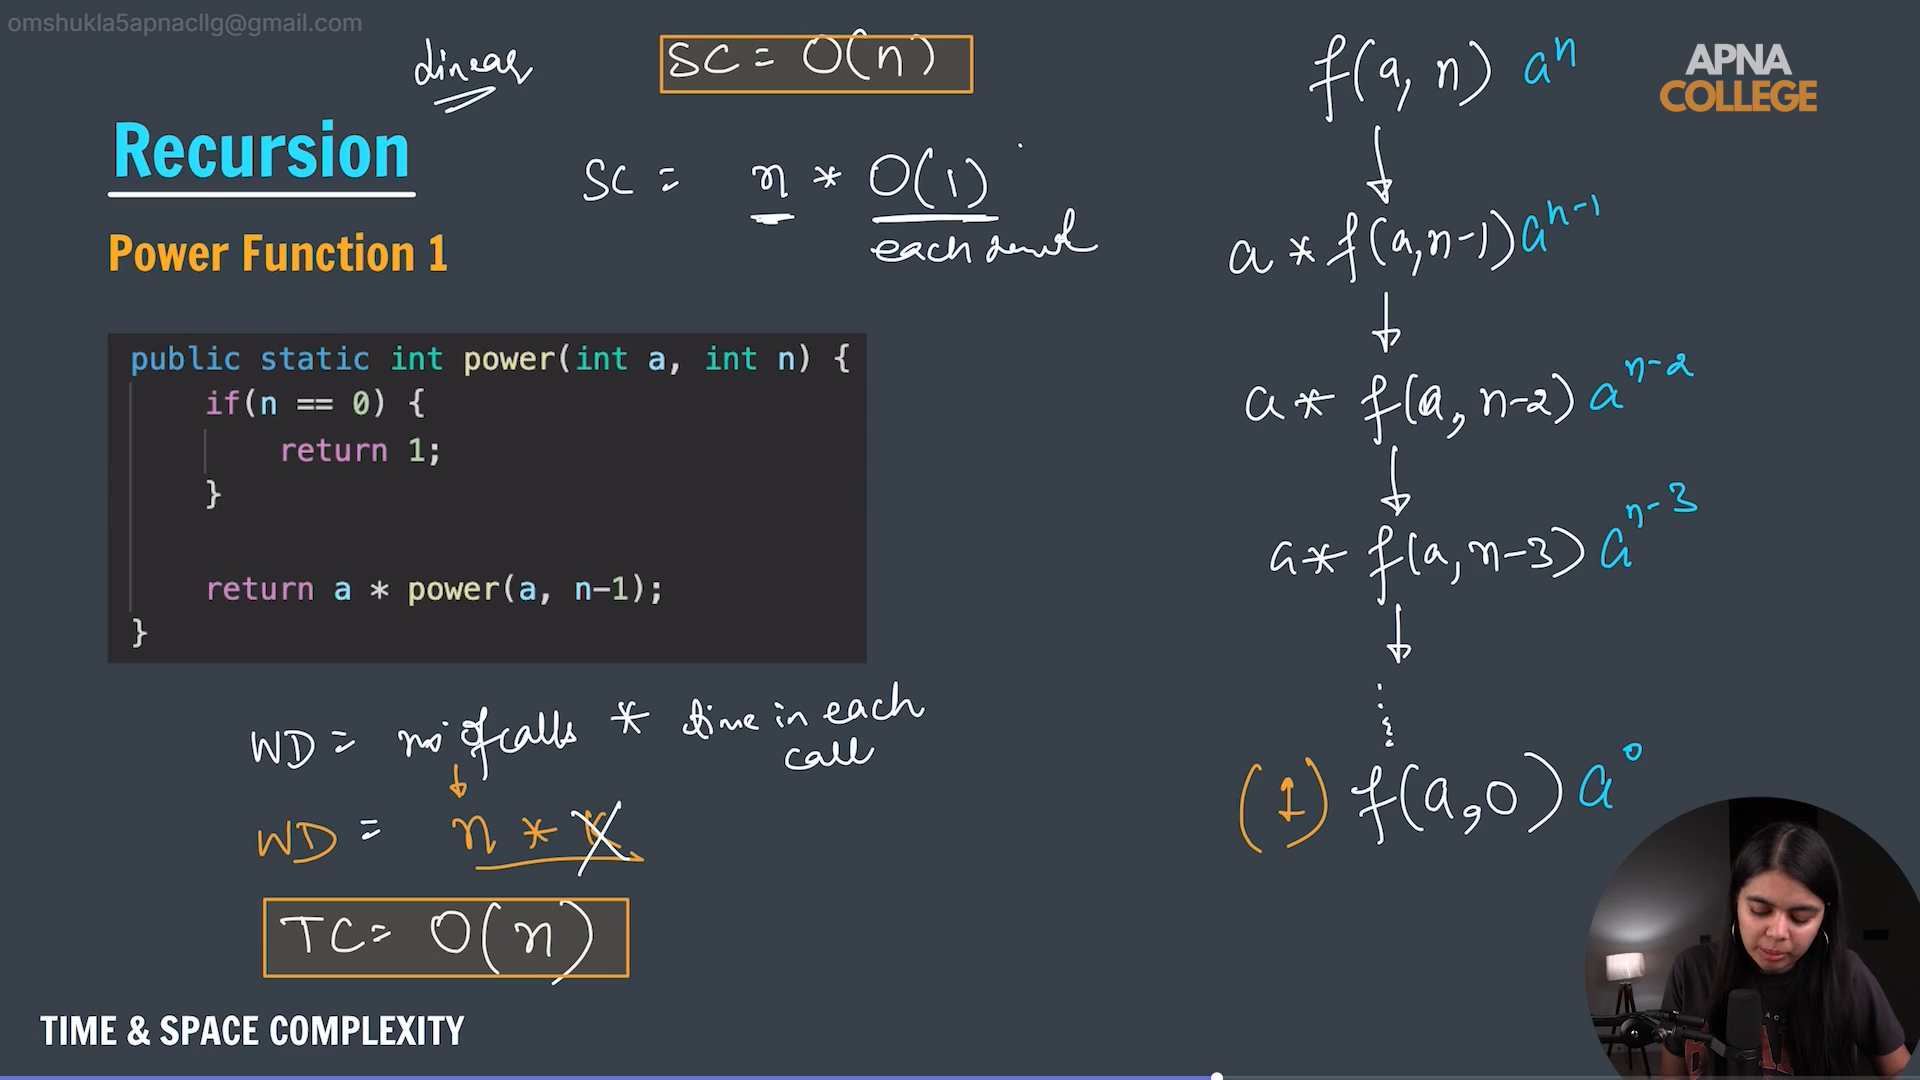 omshukla5apnacllg@gmail.com
Linear
SC = O(n)
APNA
COLLEGE
Recursion
SC = n * O(1)
each
Power Function 1
public static int power(int a, int n) {
if(n == 0) {
return 1;
}
return a * power(a, n-1);
}
WD = no of calls * time in each
call
WD = n *
TC = O(n)
f(a, n) aⁿ
a * f(a,n-1) aⁿ⁻¹
a * f(a, n-2) aⁿ⁻²
a * f(a, n-3) aⁿ⁻³
(1) f(a,0) a⁰
TIME & SPACE COMPLEXITY